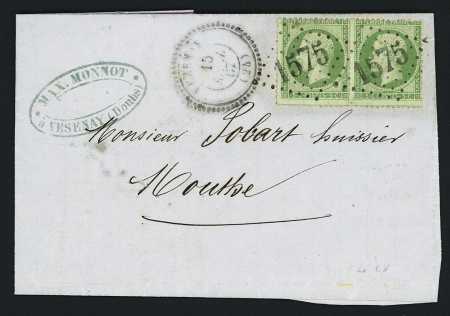 MAX. MONNOT
à VESENAY (Doubs)
15
1575
1575
Monsieur Jobart huissier
Mouthe